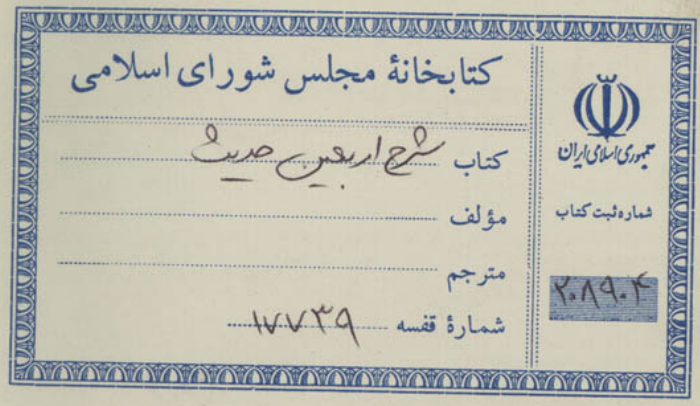 کتابخانهٔ مجلس شورای اسلامی
کتاب شرح اربعین حدیث
مؤلف
مترجم
شمارهٔ قفسه ۱۷۷۳۹
جمهوری اسلامی ایران
شماره ثبت کتاب
۲۰۸۹۰۴